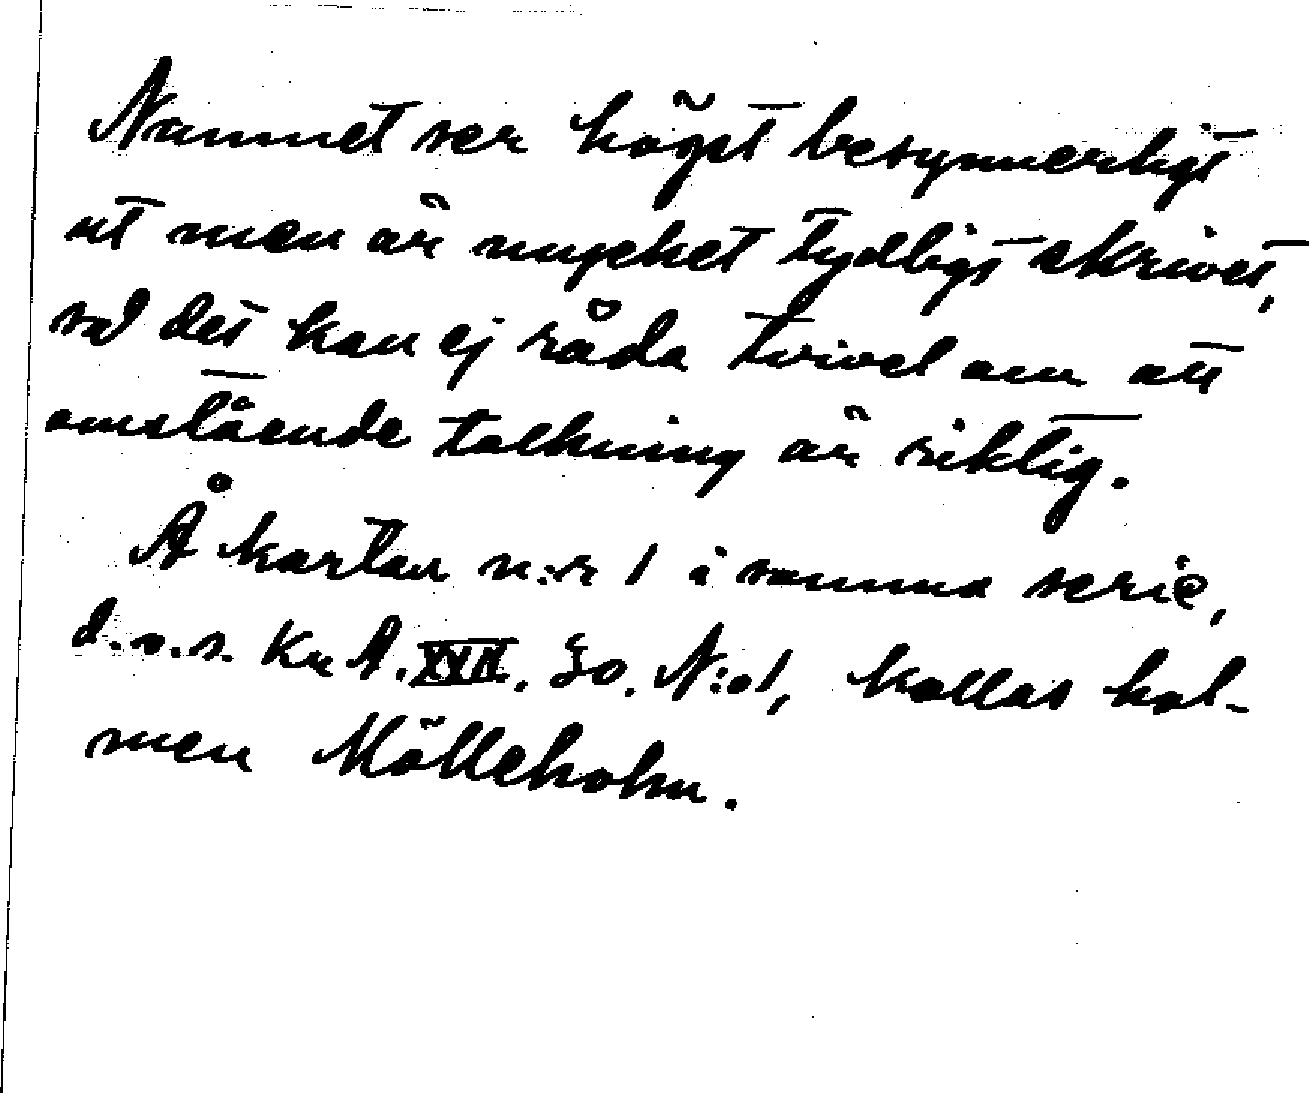 Namnet ser högst besynnerligt
ut men är mycket tydligt skrivet,
så det kan ej råda tvivel om att
omstående tolkning är riktig.
Å kartan n:r 1 i samma serie,
d.v.s. Kr A. XVII. 30. N:o 1, kallas hol-
men Mölleholm.